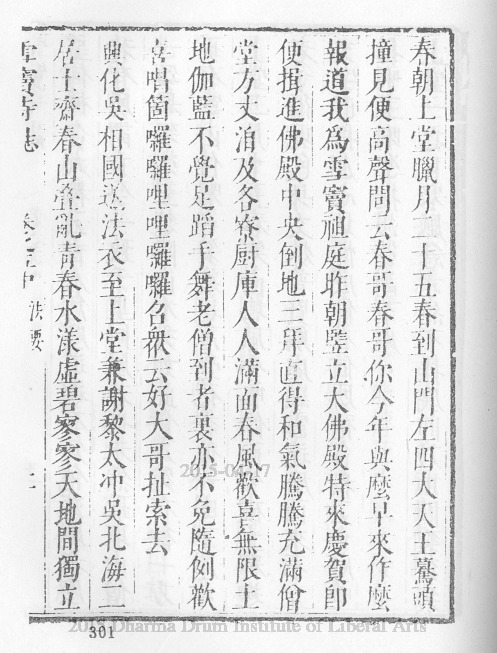 春朝上堂臘月二十五春到山門左四大天王驀頭
撞見便高聲問云春哥春哥你今年與麼早來作麼
報道我為雪竇祖庭昨朝豎立大佛殿特來慶賀即
便揖進佛殿中央倒地三拜直得和氣騰騰充滿僧
堂方丈洎及各寮厨庫人人滿面春風歡喜無限土
地伽藍不覺足蹈手舞老僧到者裏亦不免隨例歡
喜唱箇囉囉哩哩囉囉召眾云好大哥扯索去
興化吳相國送法衣至上堂兼謝黎太冲吳北海二
居士齋春山疊亂青春水漾虛碧寥寥天地間獨立
雪竇寺誌 卷之五中 法要
301
2015 Dharma Drum Institute of Liberal Arts